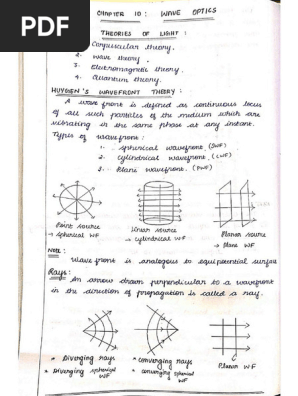 PDF
CHAPTER 10: WAVE OPTICS
THEORIES OF LIGHT:
Corpuscular theory.
2. Wave theory.
3. Electromagnetic theory.
4. Quantum theory.
HUYGEN'S WAVEFRONT THEORY:
A wave front is defined as continuous locus
of all such particles of the medium which are
vibrating in the same phase at any instant.
Types of wavefront:
1. spherical wavefront. (SWF)
2. cylindrical wavefront. (CWF)
3. Plane wavefront. (PWF)
Point source
→ spherical WF
Linear source
→ cylindrical WF
Planar source
→ plane WF
Note:
Wave front is analogous to equipotential surface
Rays:
An arrow drawn perpendicular to a wavefront
in the direction of propagation is called a ray.
* Diverging rays
* Diverging spherical WF
* converging rays
* converging spherical WF
Planar WF